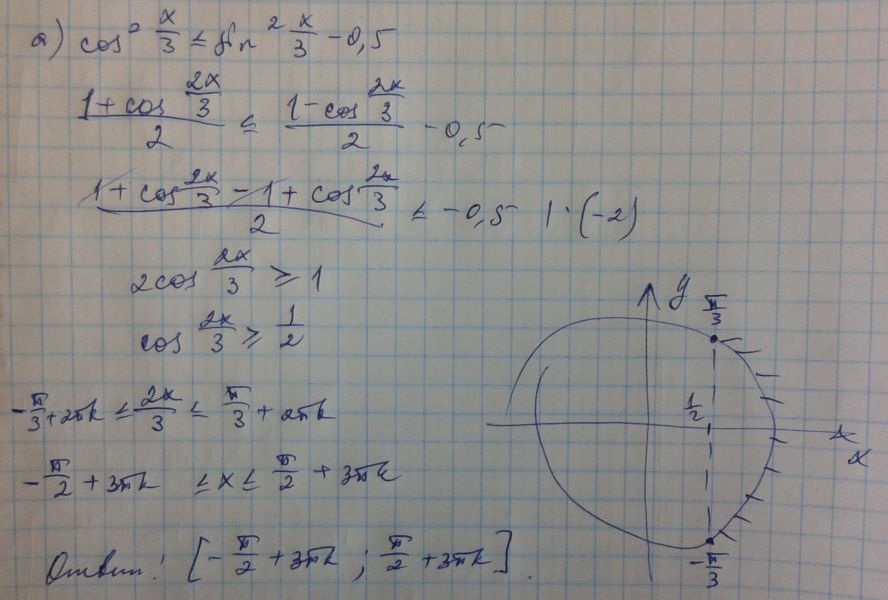 а) cos² x/3 ≤ sin² x/3 - 0,5
(1 + cos 2x/3)/2 ≤ (1 - cos 2x/3)/2 - 0,5
(1 + cos 2x/3 - 1 + cos 2x/3)/2 ≤ -0,5 | · (-2)
2cos 2x/3 ≥ 1
cos 2x/3 ≥ 1/2
-π/3 + 2πk ≤ 2x/3 ≤ π/3 + 2πk
-π/2 + 3πk ≤ x ≤ π/2 + 3πk
Ответ: [-π/2 + 3πk ; π/2 + 3πk].
y
π/3
1/2
x
-π/3